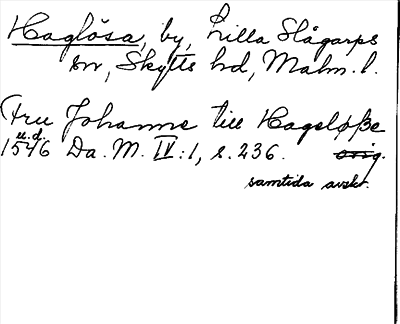 Haglösa, by, Lilla Slågarps
sn, Skytts hd, Malm. l.
Fru Johanne till Hageløße
u.d.
1546 Da. M. IV:1, s. 236. orig.
samtida avskr.